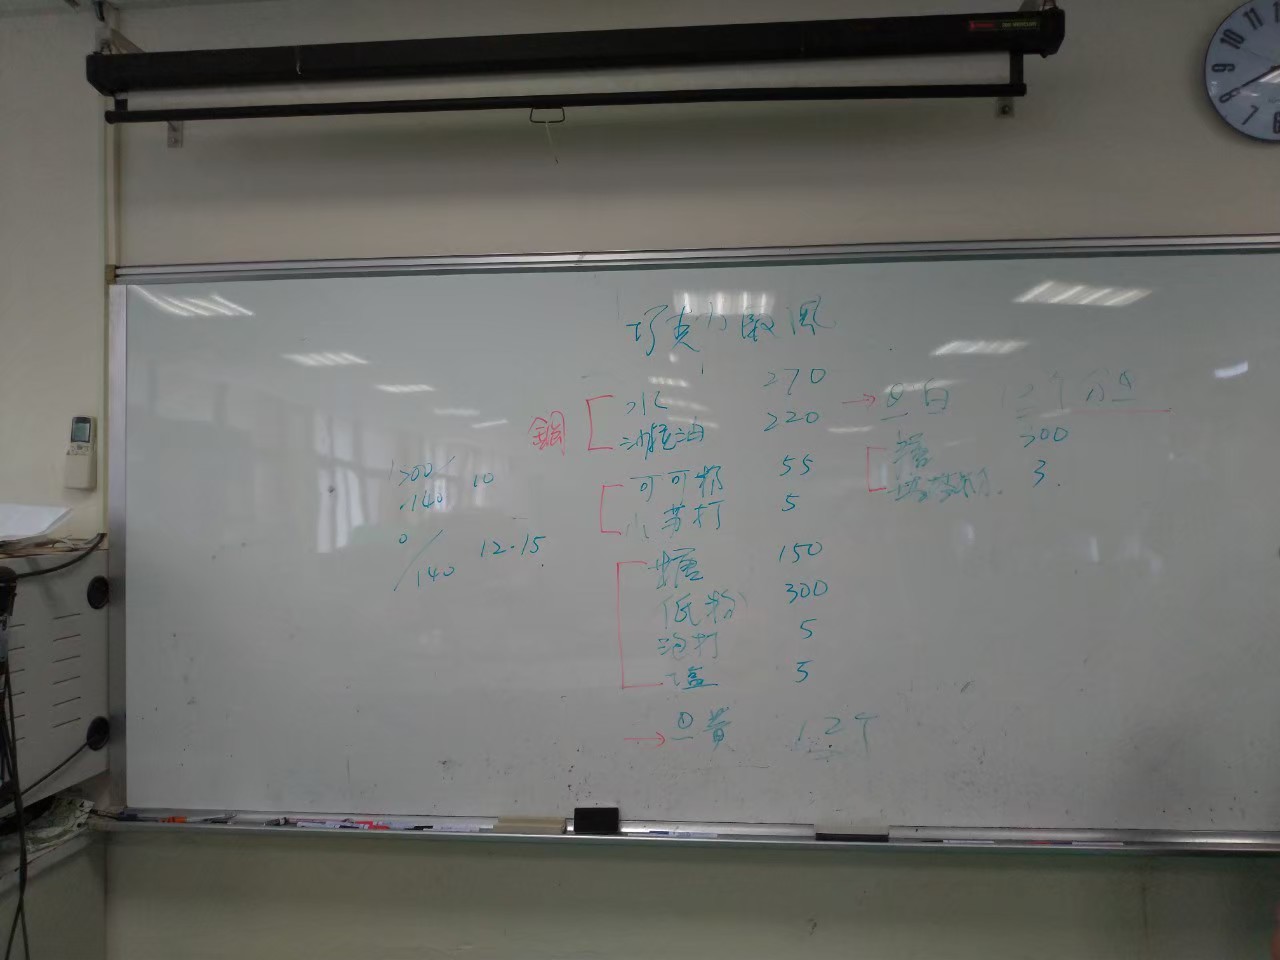 巧克力戚風
鍋
水 270
沙拉油 220
可可粉 55
小苏打 5
糖 150
低粉 300
泡打 5
盐 5
→ 旦黄 12个
→ 旦白 12个 分旦
糖 300
塔塔粉 3
200/140 10
0/140 12-15
11
10
9
8
7
6